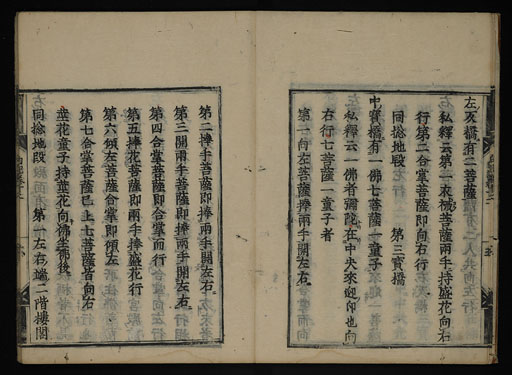 左右橋有二菩薩
私釋云第一衣裓菩薩兩手持盛花向右
行第二合掌菩薩即向右行
同捻地段 第三寶橋
中寶橋有一佛七菩薩一童子
私釋云一佛者彌陀在中央來迎印也向
右行七菩薩一童子者
第一向左菩薩捧兩手開左右
第二捧手菩薩即捧兩手開左右
第三開兩手菩薩即捧兩手開左右
第四合掌菩薩即合掌而行
第五捧花菩薩即兩手捧盛花行
第六傾左菩薩合掌即傾左
第七合掌菩薩已上七菩薩皆向右
盛花童子持盛花向佛坐佛後
同捻地段 第一左右端二階樓閣